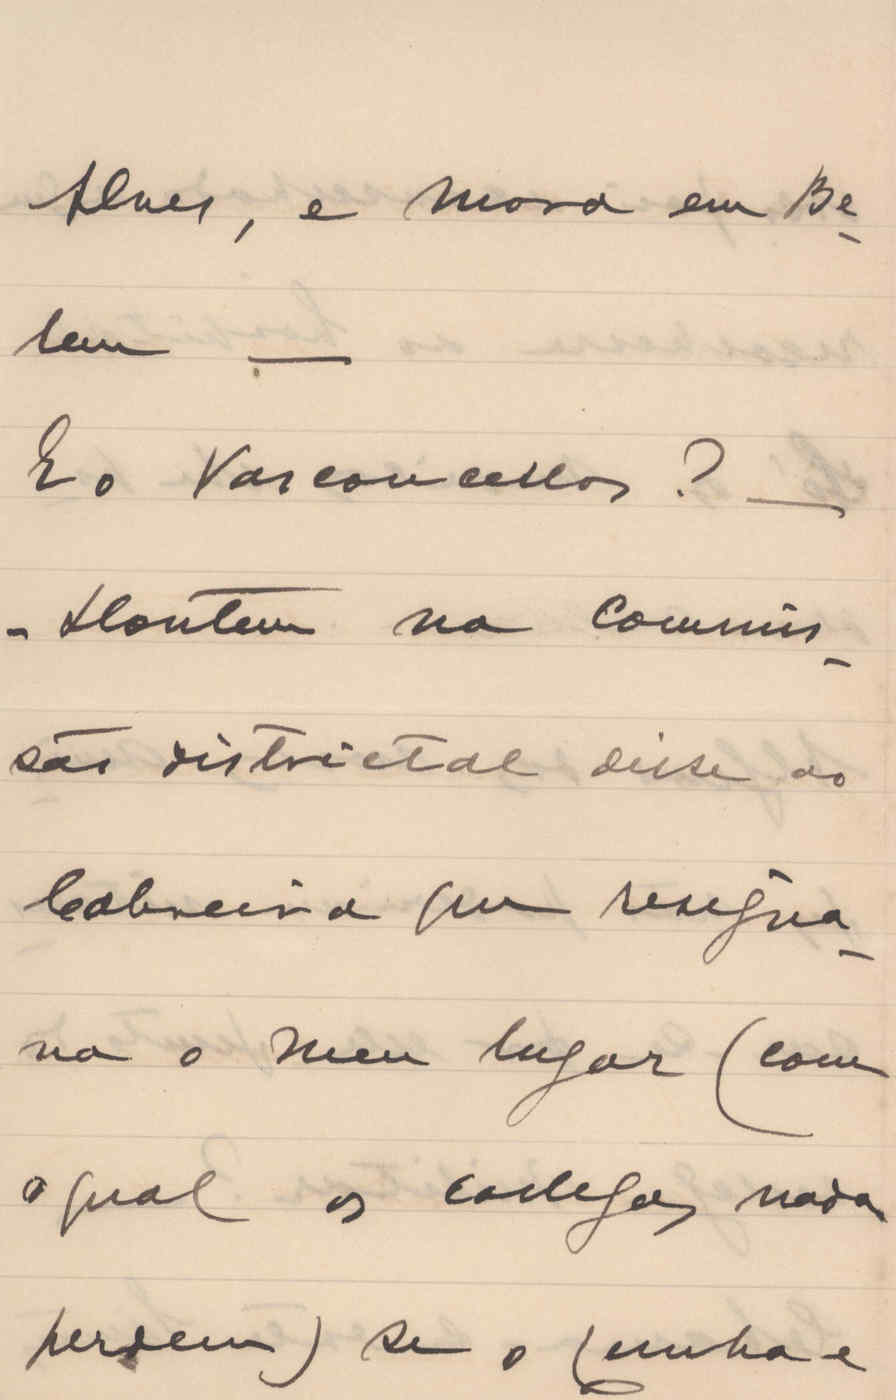 Alves, e mora em Be-
lem —
E o Vasconcellos? —
- Hontem na commis-
são districtal disse ao
Cabreira que resigna-
va o meu lugar (com
o qual os collegas nada
perdem) se o Cunha e